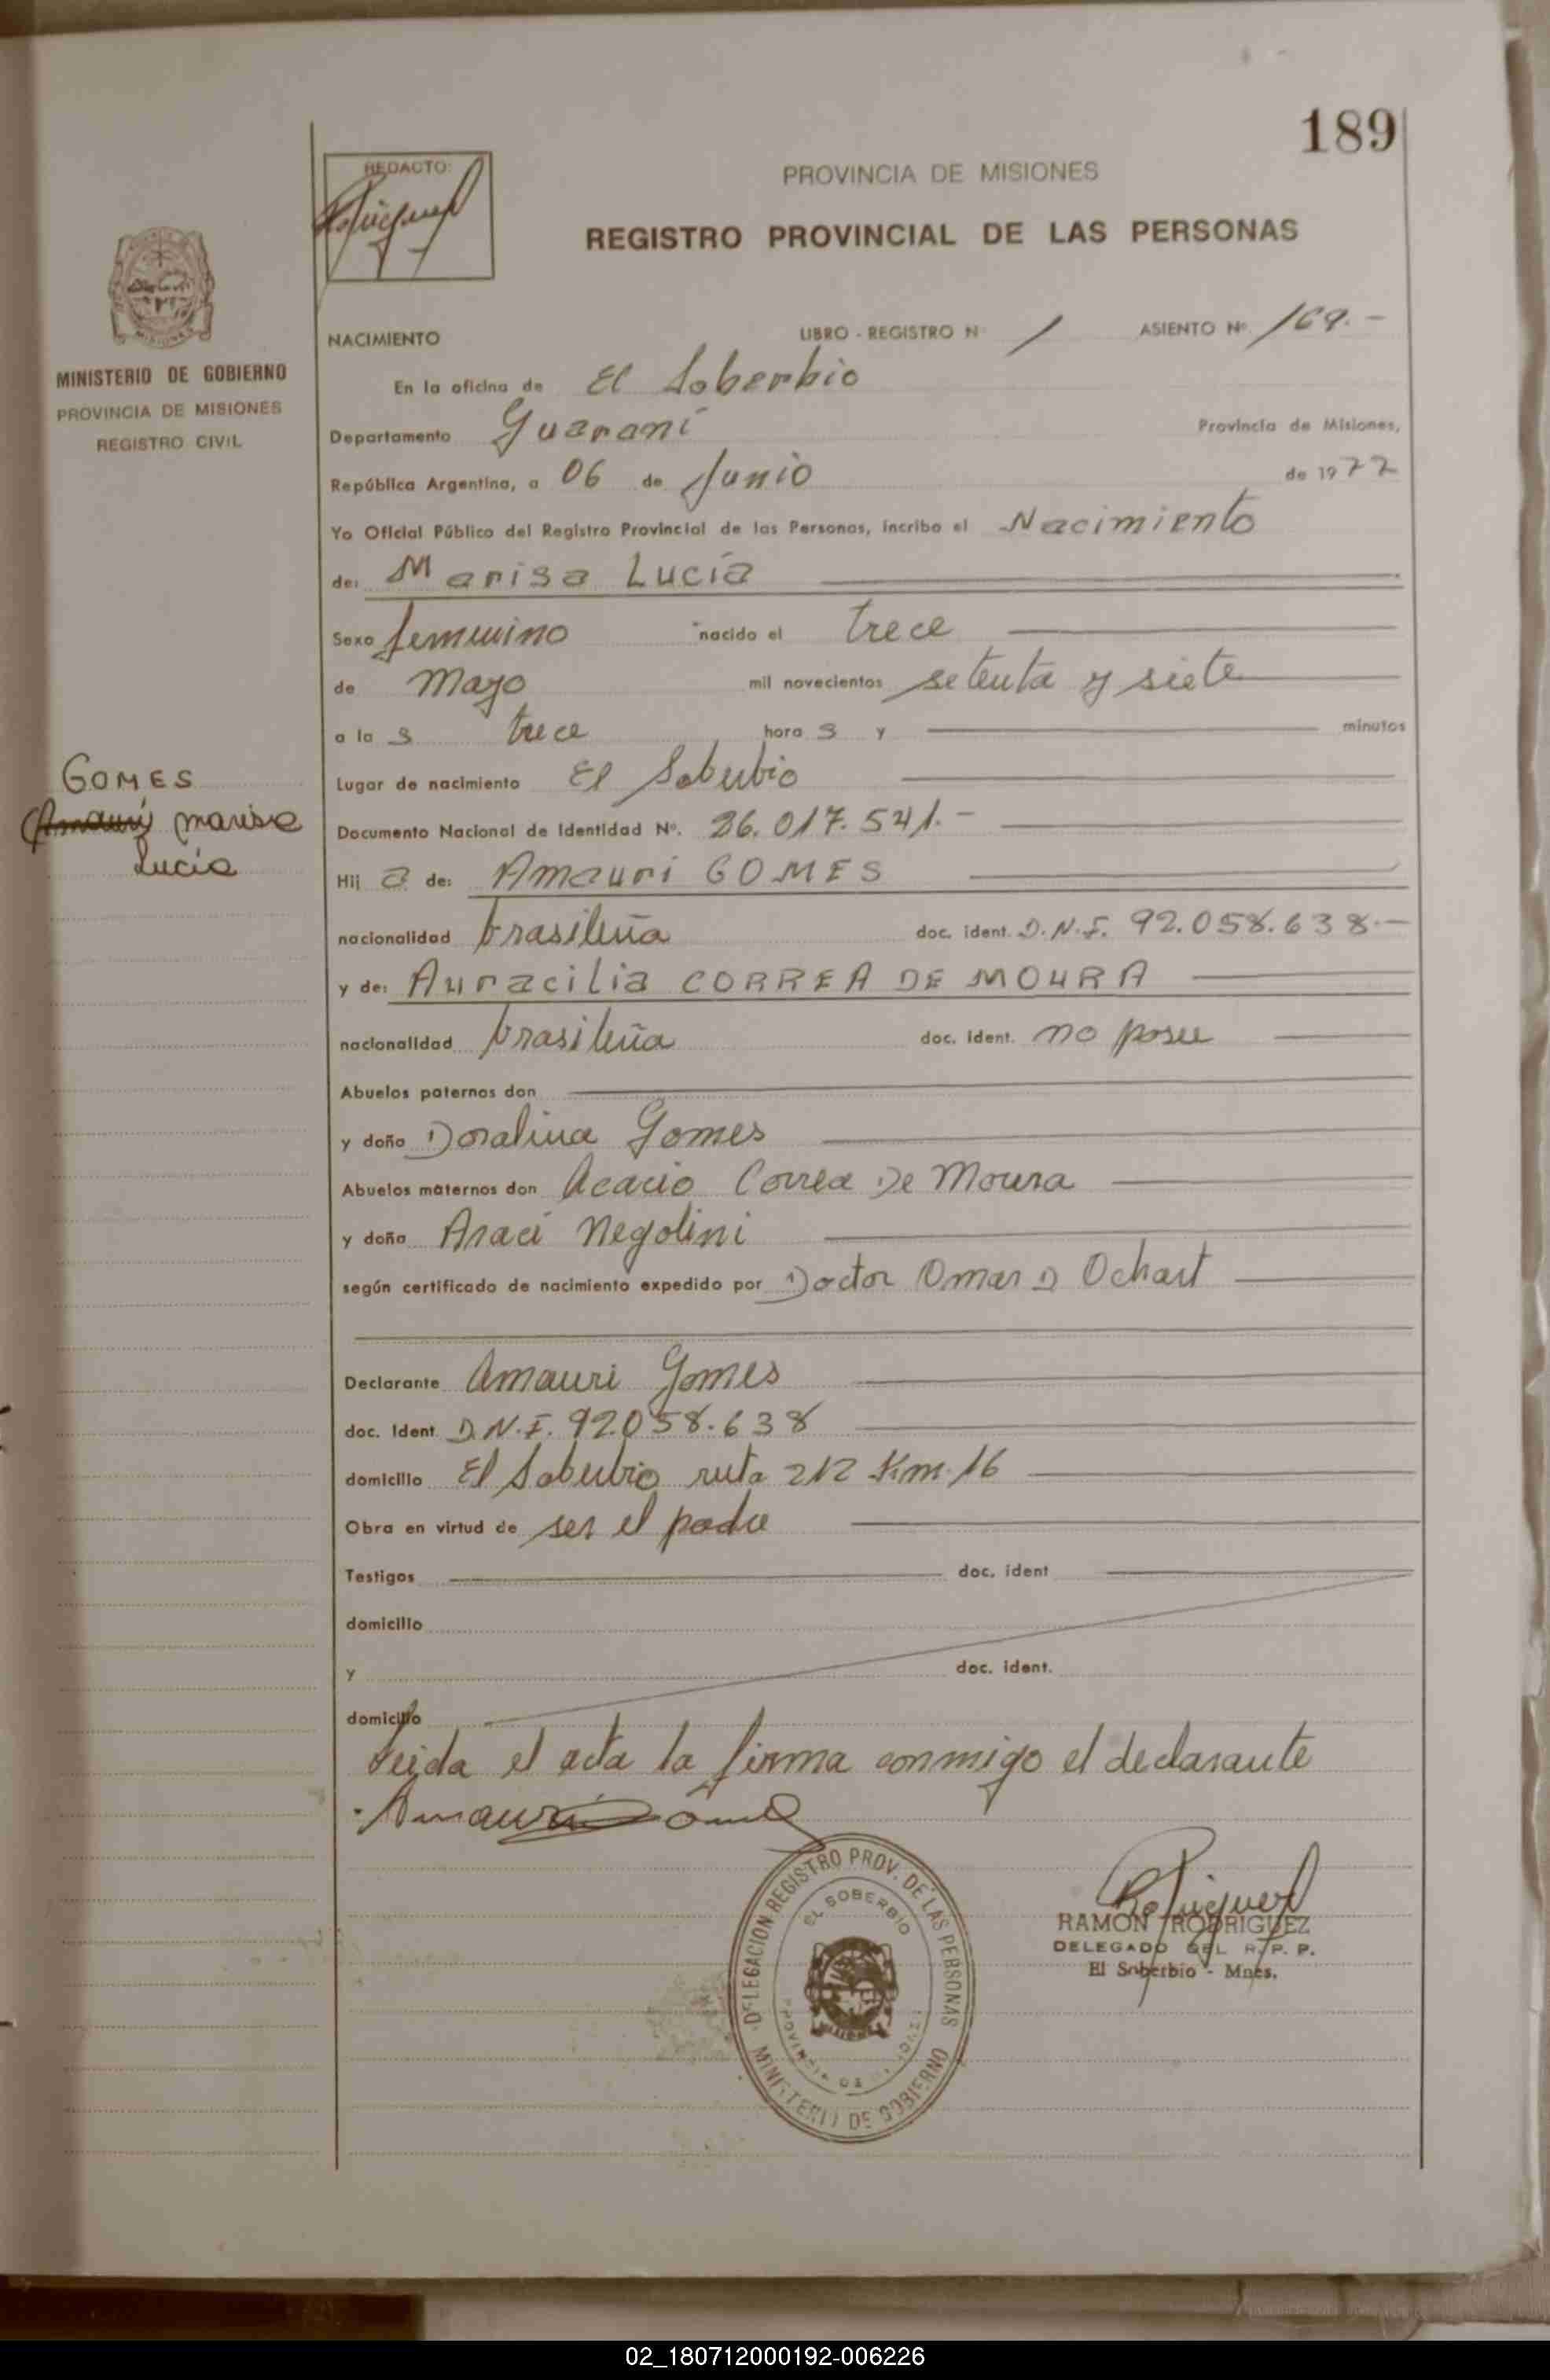 189
REDACTO:
PROVINCIA DE MISIONES
REGISTRO PROVINCIAL DE LAS PERSONAS
MINISTERIO DE GOBIERNO
PROVINCIA DE MISIONES
REGISTRO CIVIL
NACIMIENTO LIBRO - REGISTRO Nº 1 ASIENTO Nº 169.-
En la oficina de El Soberbio
Departamento Guaraní Provincia de Misiones,
República Argentina, a 06 de Junio de 1977
Yo Oficial Público del Registro Provincial de las Personas, incribo el Nacimiento
de: Marisa Lucía
Sexo femenino nacido el trece
de Mayo mil novecientos setenta y siete
a la s trece hora s y minutos
Lugar de nacimiento El Soberbio
GOMES
(Amauri) Marisa
Lucía
Documento Nacional de Identidad Nº. 26.017.541.-
Hij a de: Amauri GOMES
nacionalidad brasileña doc. ident. D.N.I. 92.058.638.-
y de: Auracilia CORREA DE MOURA
nacionalidad brasileña doc. ident. no posee
Abuelos paternos don
y doña Doralina Gomes
Abuelos maternos don Acacio Correa De Moura
y doña Araci Negolini
según certificado de nacimiento expedido por Doctor Omar D Ochart
Declarante Amauri Gomes
doc. ident D.N.I. 92.058.638
domicilio El Soberbio ruta 212 Km. 16
Obra en virtud de ser el padre
Testigos doc. ident
domicilio
y doc. ident.
domicilio
Leida el acta la firma conmigo el declarante
Amauri Gomes
DELEGACION REGISTRO PROV. DE LAS PERSONAS
EL SOBERBIO
PROVINCIA DE MISIONES
MINISTERIO DE GOBIERNO
RAMON RODRIGUEZ
DELEGADO DEL R. P. P.
El Soberbio - Mnes.
02_180712000192-006226